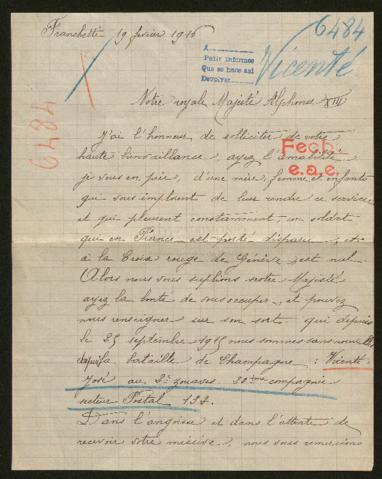 6484
Franchetti 19 février 1916
A
Pedir Informes
Que se hace así
Devolver
Vicenté
Notre royale Majesté Alphonse XIII
6484
J'ai l'honneur de solliciter de votre
haute bienvaillance, ayez l'amabilité
Fech
e.a.e.
je vous en prie, d'une mère, femme et enfants
qui vous implorent de leur rendre ce service
et qui pleurent constamment un soldat
qui en France est porté disparu, et
à la Croix rouge de Genève est nul.
Alors nous vous suplions votre Majesté
ayez la bonté de vous occuper, et pouvez
nous renseigner sur son sort, qui depuis
le 25 septembre 1915 nous sommes sans nouvelle
depuis la bataille de Champagne : Vicente
José au 2e zouaves 20ème compagnie
secteur Postal 132.
Dans l'angoisse et dans l'attente de
recevoir votre missive, nous vous remercions